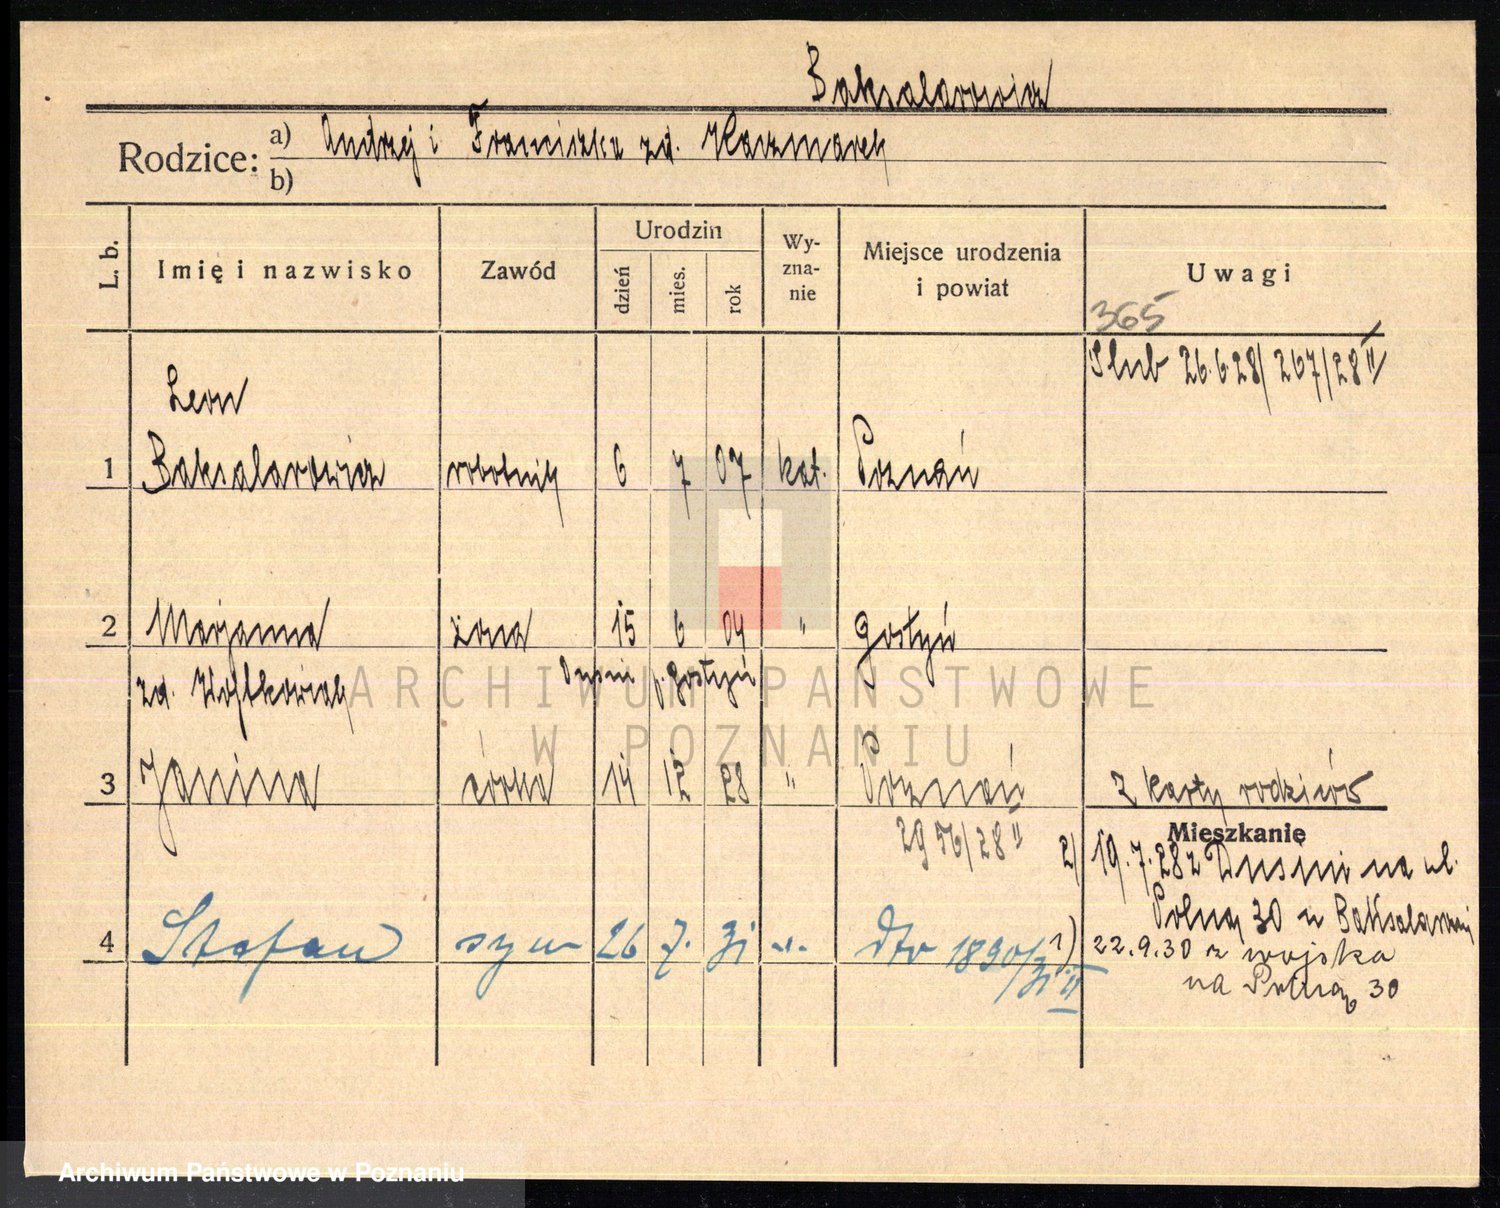 Baksalarowicz
Rodzice: a) Andrzej i Franciszka zd. Kaczmarek
b)
L. b. Imię i nazwisko Zawód Urodzin dzień mies. rok Wy-zna-nie Miejsce urodzenia i powiat Uwagi
365
Ślub 26.6.28/267/28 II
Leon
1 Baksalarowicz robotnik 6 7 07 kat. Poznań
2 Marjanna żona 15 6 04 " Gostyń
zd. Wojtkowiak Dusini p. Gostyń
3 Janina córka 14 12 28 " Poznań z karty rodziców
2956/28 II
Mieszkanie
2) 19.7.28 z Dusini na ul.
Polną 30 u Baksalarowicz
4 Stefan syn 26 7. 31 -"- dto 1890/31 II
1) 22.9.30 z wojska
na Polną 30
ARCHIWUM PAŃSTWOWE
W POZNANIU
Archiwum Państwowe w Poznaniu